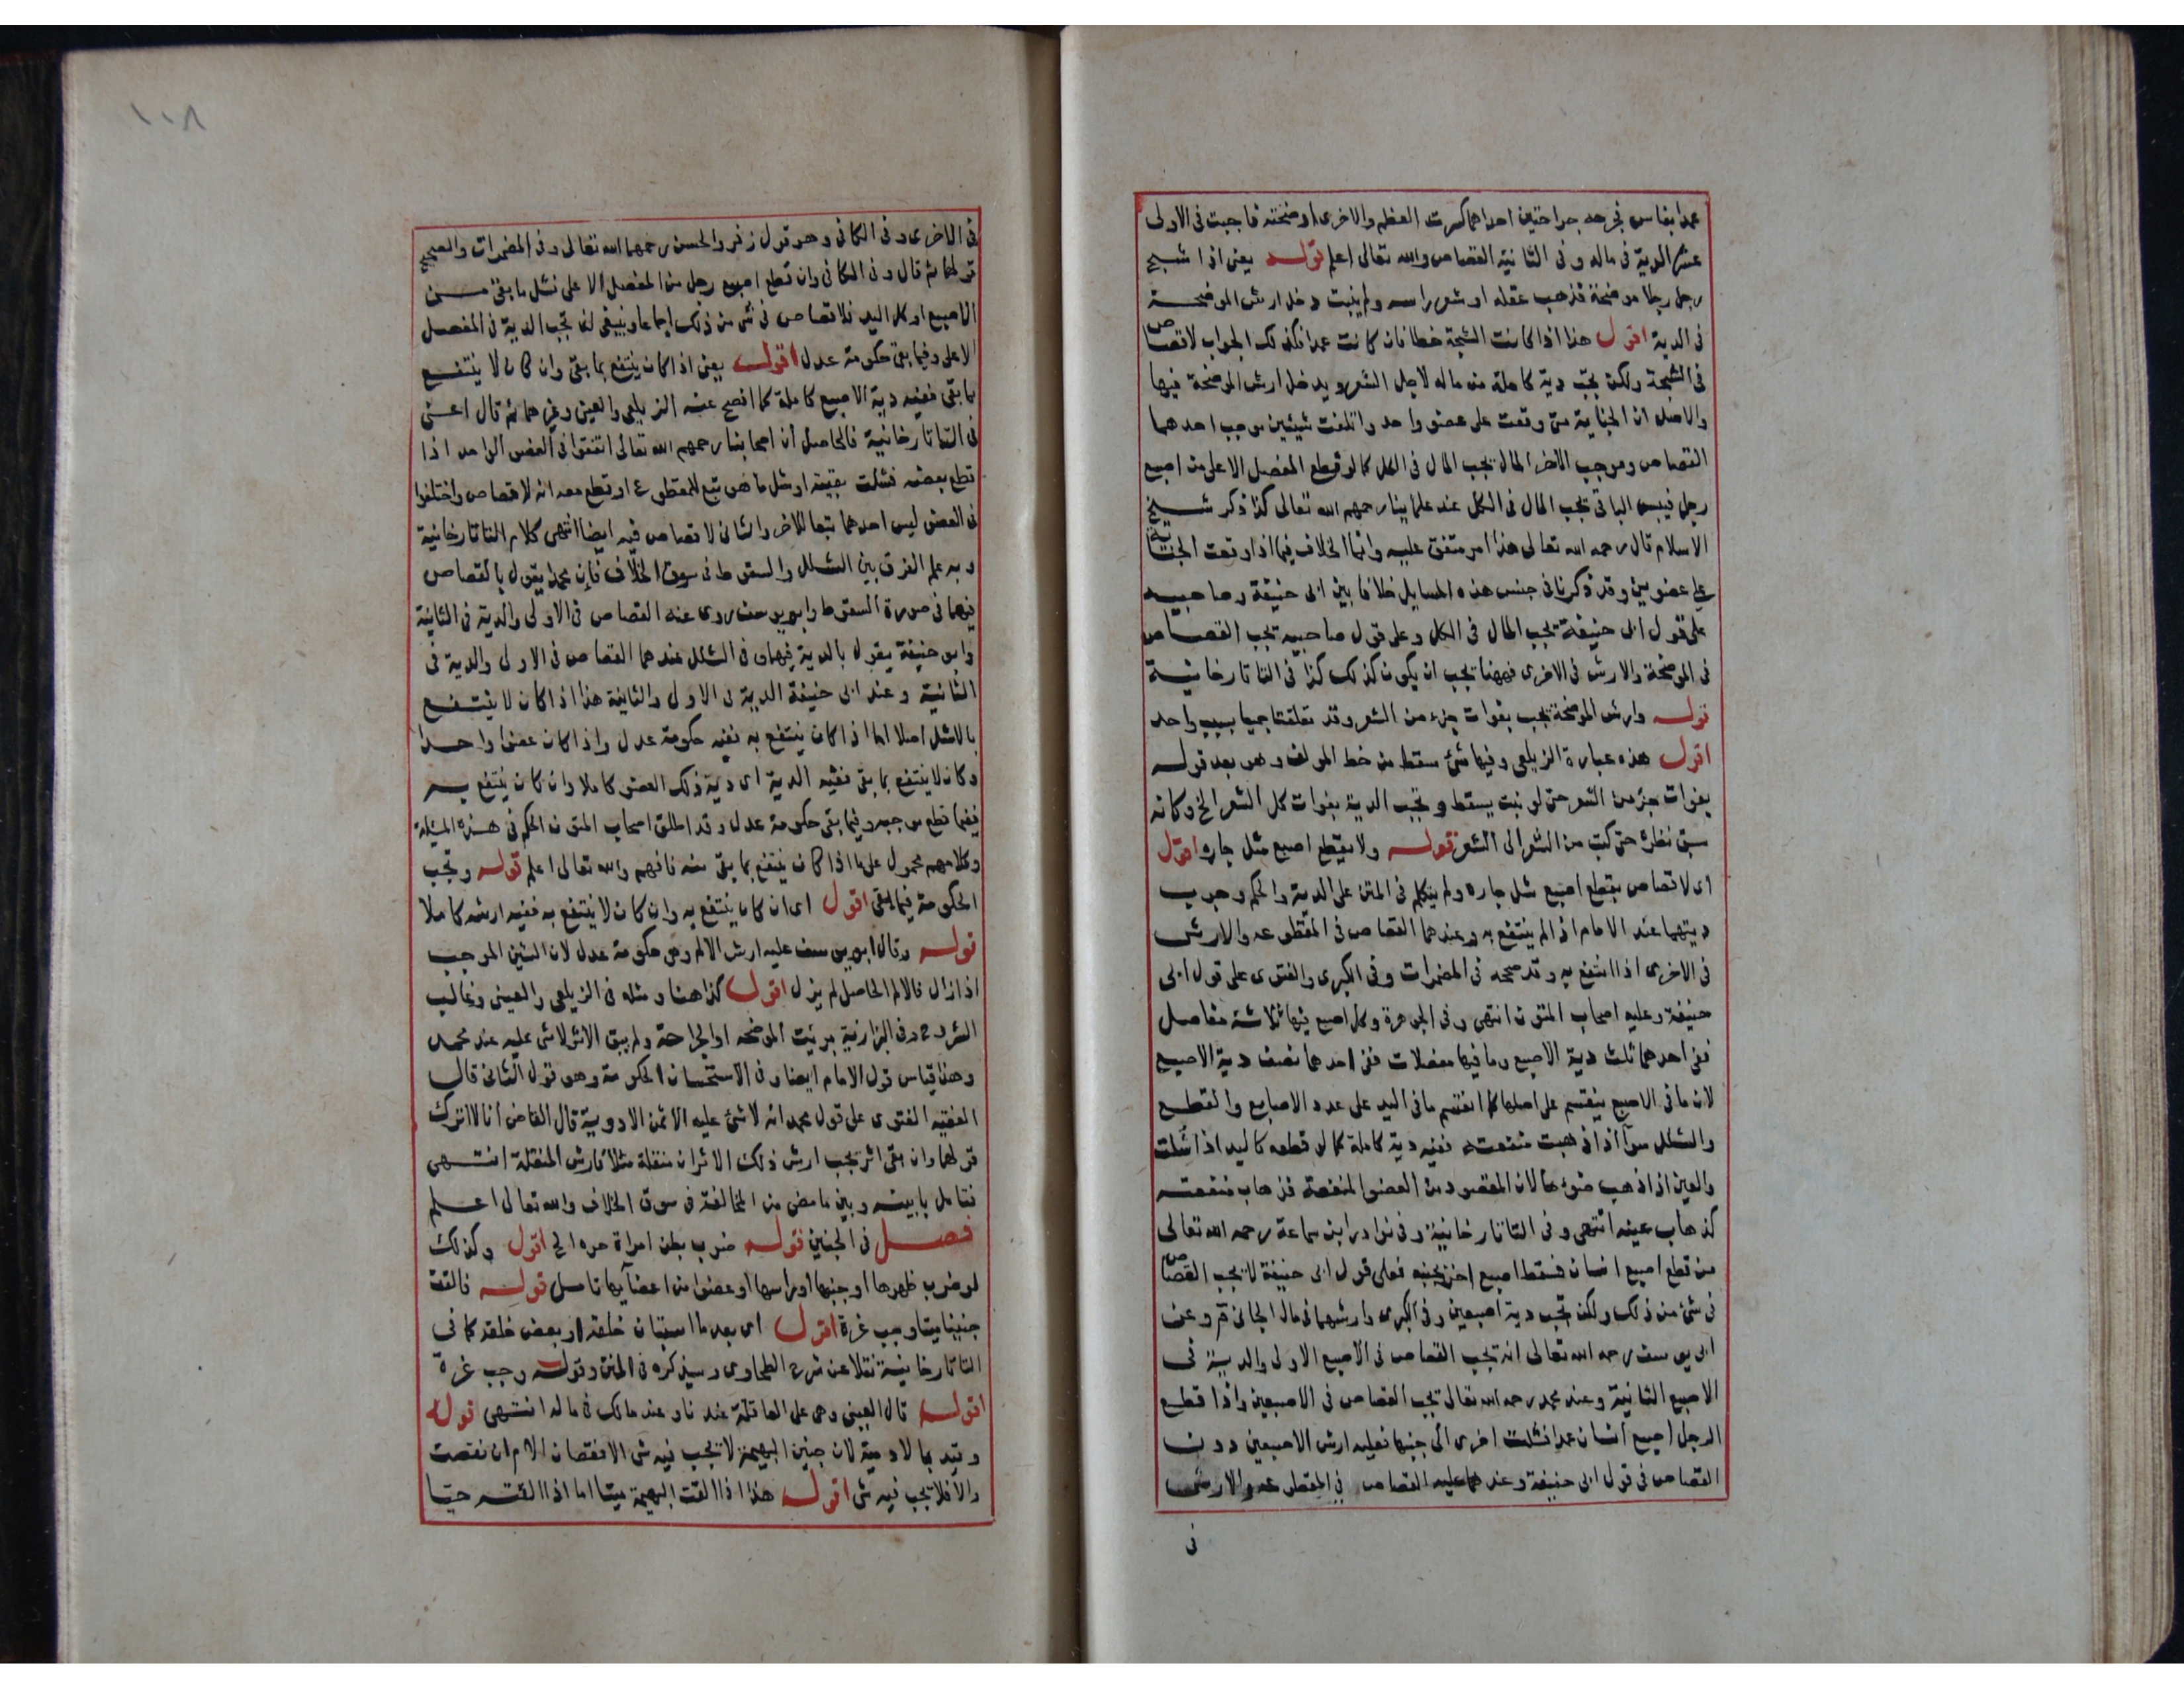 عمدا بفاس فجرحه جراحتين احداهما كسرت العظم والاخرى اوضحته فاجبت في الاولى
عشر الدية في ماله وفي الثانية القصاص والله تعالى اعلم قوله يعني اذا شج
رجل رجلا موضحة فذهب عقله او شعر راسه ولم ينبت دخل ارش الموضحة
في الدية اقول هذا اذا كانت الشجة خطا فان كانت عمدا فكذلك الجواب لا قصاص
في الشجة ولكن تجب دية كاملة من ماله لاجل الشعر ويدخل ارش الموضحة فيها
والاصل ان الجناية متى وقعت على عضو واحد واتلفت شيئين موجب احدهما
القصاص وموجب الاخر المال يجب المال في الكل كما لو قطع المفصل الاعلى من اصبع
رجل فيبس الباقي يجب المال في الكل عند علماينا رحمهم الله تعالى كذا ذكر شيخ
الاسلام قال رحمه الله تعالى هذا امر متفق عليه وانما الخلاف فيما اذا وقعت الجناية
على عضوين وقد ذكرنا في جنس هذه المسايل خلافا بين ابى حنيفة وصاحبيه
على قول ابى حنيفة يجب المال في الكل وعلى قول صاحبيه يجب القصاص
في الموضحة والارش في الاخرى فههنا يجب ان يكون كذلك كذا في التاتارخانية
قوله وارش الموضحة يجب بفوات جزء من الشعر وقد تعلقتا جميعا بسبب واحد
اقول هذه عبارة الزيلعي وفيها شئ سقط من خط المولف وهو بعد قوله
بفوات جزء من الشعر حتى لو نبت يسقط وتجب الدية بفوات كل الشعر الخ وكانه
سبق نظره حتى كتب من الشعر الى الشعر قوله ولا بقطع اصبع شل جاره اقول
اى لا قصاص بقطع اصبع شل جاره ولم يتكلم في المتن على الدية والحكم وجوب
ديتهما عند الامام اذا لم ينتفع به وعندهما القصاص في المقطوعه والارش
في الاخرى اذا انتفع به وقد صححه في المضمرات وفي الكبرى والفتوى على قول ابى
حنيفة وعليه اصحاب المتون انتهى وفي الجوهرة وكل اصبع فيها ثلاثة مفاصل
ففي احدهما ثلث دية الاصبع وما فيها مفصلان ففي احدهما نصف دية الاصبع
لان ما في الاصبع ينقسم على اصلها كما انقسم ما في اليد على عدد الاصابع والقطع
والشلل سوآ اذا ذهبت منفعته ففيه دية كاملة كما لو قطعه كاليد اذا شلت
والعين اذا ذهب ضوءها لان المقصود من العضو المنفعة فذهاب منفعته
كذهاب عينه انتهى وفي التاتارخانية وفي نوادر ابن سماعة رحمه الله تعالى
من قطع اصبع انسان فسقط اصبع اخر بجنبه فعلى قول ابى حنيفة لا يجب القصاص
في شئ من ذلك ولكن تجب دية اصبعين وفي الكبرى وارشهما في مال الجاني م وعن
ابى يوسف رحمه الله تعالى انه يجب القصاص في الاصبع الاولى والدية في
الاصبع الثانية وعند محمد رحمه الله تعالى يجب القصاص في الاصبعين واذا قطع
الرجل اصبع انسان عمدا فشلت اخرى الى جنبها فعليه ارش الاصبعين دون
القصاص في قول ابى حنيفة وعندهما عليه القصاص في المقطوعه والارش
في
١٠٨
في الاخرى وفي الكافي وهو قول زفر والحسن رحمهما الله تعالى وفي المضمرات والصحيح
قولهما ثم قال وفي الكافي وان قطع اصبع رجل من المفصل الاعلى فشل ما بقي من
الاصبع او كل اليد فلا قصاص في شئ من ذلك اجماعا وينبغي ان تجب الدية في المفصل
الاعلى وفيما بقي حكومة عدل اقول يعني اذا كان ينتفع بما بقي وان كان لا ينتفع
بما بقي ففيه دية الاصبع كاملة كما افصح عنه الزيلعي والعيني وغيرهما ثم قال اعني
في التاتارخانية فالحاصل ان اصحابنا رحمهم الله تعالى اتفقوا في العضو الواحد اذا
قطع بعضه فشلت بقيته او شل ما هو تبع للمقطوع او قطع معه انه لا قصاص واختلفوا
في العضو ليس احدهما تبعا للاخر والثاني لا قصاص فيه ايضا انتهى كلام التاتارخانية
وبه علم الفرق بين الشلل والسقوط في سوق الخلاف فان محمدا يقول بالقصاص
فيهما في صورة السقوط وابو يوسف روى عنه القصاص في الاولى والدية في الثانية
وابو حنيفة يقول بالدية فيهما وفي الشلل عندهما القصاص في الاولى والدية في
الثانية وعند ابى حنيفة الدية في الاولى والثانية هذا اذا كان لا ينتفع
بالاشل اصلا اما اذا كان ينتفع به ففيه حكومة عدل واذا كان عضوا واحدا
وكان لا ينتفع بما بقي ففيه الدية اى دية ذلك العضو كاملا وان كان ينتفع به
ففيما قطع موجبه وفيما بقي حكومة عدل وقد اطلق اصحاب المتون الحكم في هذه المسئلة
وكلامهم محمول على ما اذا كان ينتفع بما بقي منه فافهم والله تعالى اعلم قوله وتجب
الحكومة فيما بقي اقول اى ان كان ينتفع به وان كان لا ينتفع به ففيه ارشه كاملا
قوله وقال ابو يوسف عليه ارش الالم وهي حكومة عدل لان الشين الموجب
اذا زال فالالم الحاصل لم يزل اقول كذا هنا ومثله في الزيلعي والعيني وغالب
الشروح وفي البزازية برئت الموضحه او الجراحة ولم يبق الاثر لا شئ عليه عند محمد
وهذا قياس قول الامام ايضا وفي الاستحسان الحكومة وهو قول الثاني قال
الفقيه الفتوى على قول محمد انه لا شئ عليه الا ثمن الادوية قال القاضي انا لا اترك
قولهما وان بقي اثر تجب ارش ذلك الاثر ان منقلة مثلا فارش المنقلة انتهى
فتامل ما بينه وبين ما مضى من المخالفة في سوق الخلاف والله تعالى اعلم
فصل في الجنين قوله ضرب بطن امراة حره الخ اقول وكذلك
لو ضرب ظهرها او جنبها او راسها او عضوا من اعضآيها تامل قوله فالقت
جنينا ميتا وجب غرة اقول اى بعد ما استبان خلقه او بعض خلقه كما في
التاتارخانية نقلا عن شرح الطحاوى وسيذكره في المتن وقوله وجب غرة
اقول قال العيني وهي على العاقلة عندنا وعند مالك في ماله انتهى قوله
وقيد بالادمية لان جنين البهيمة لا يجب فيه شئ الا نقصان الام ان نقصت
والا فلا يجب فيه شئ اقول هذا اذا القت البهيمة ميتا اما اذا القته حيا